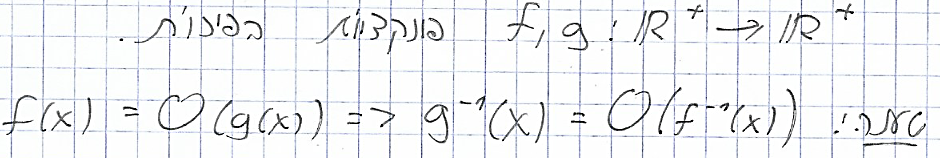 f, g : ℝ⁺ → ℝ⁺ פונקציות הפיכות.
טענה: f(x) = O(g(x)) => g⁻¹(x) = O(f⁻¹(x))